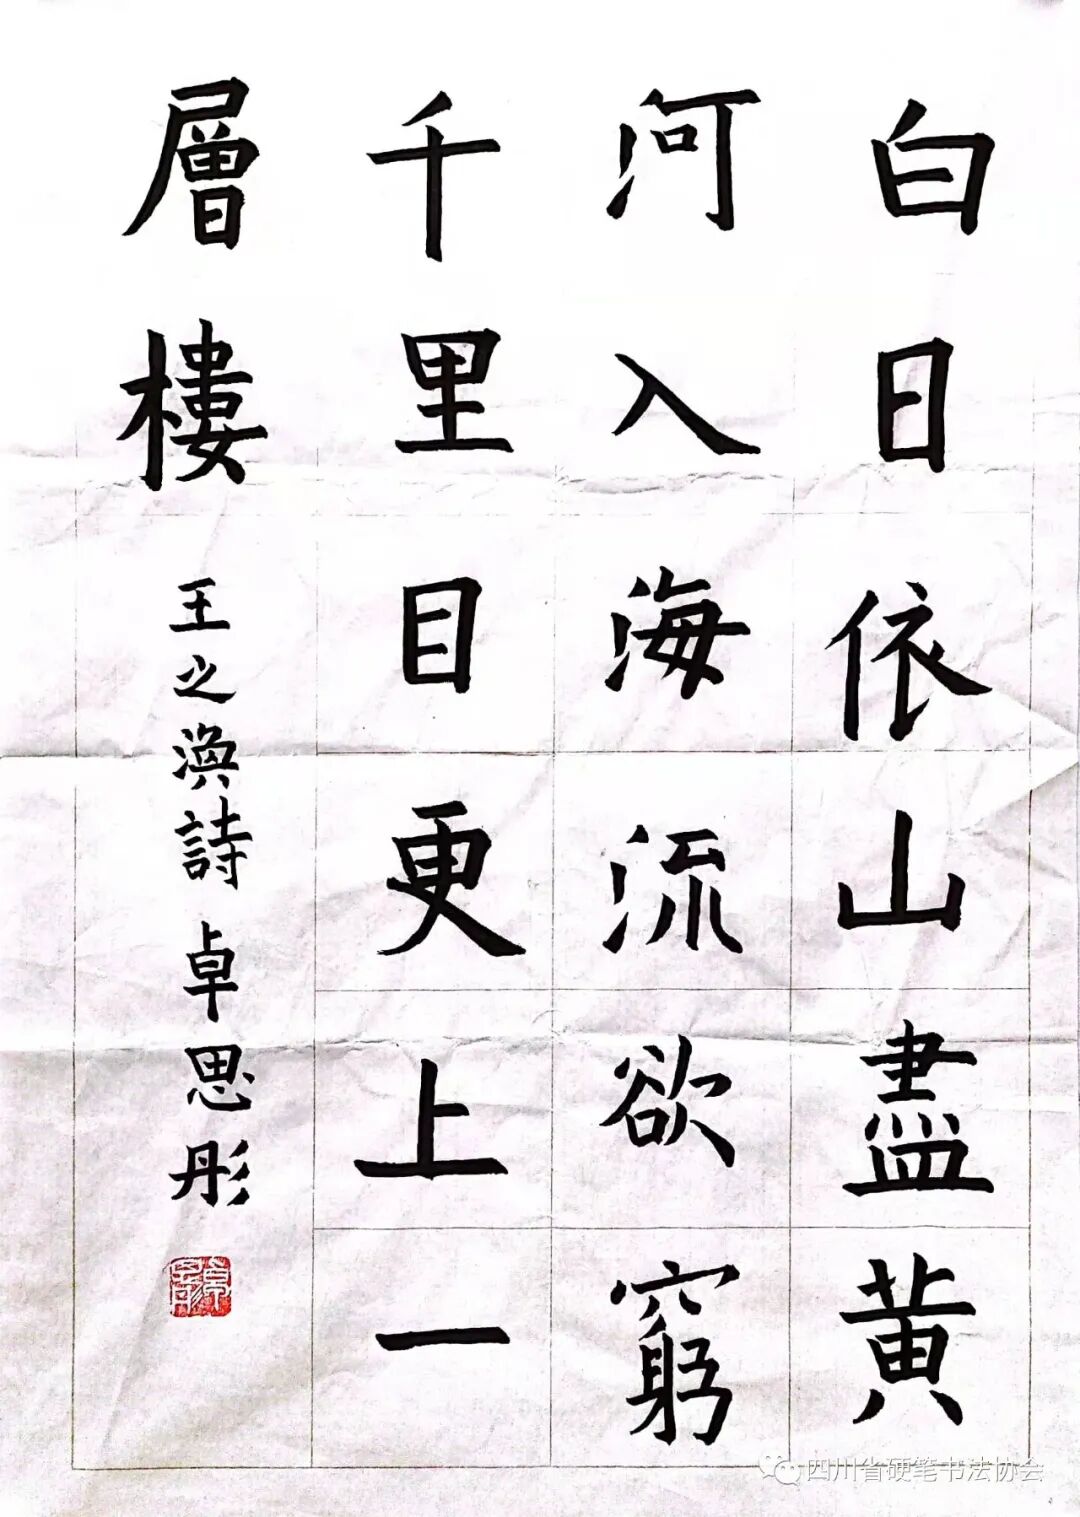 白日依山盡黄
河入海流欲窮
千里目更上一
層樓
王之渙詩 卓思彤
四川省硬笔书法协会